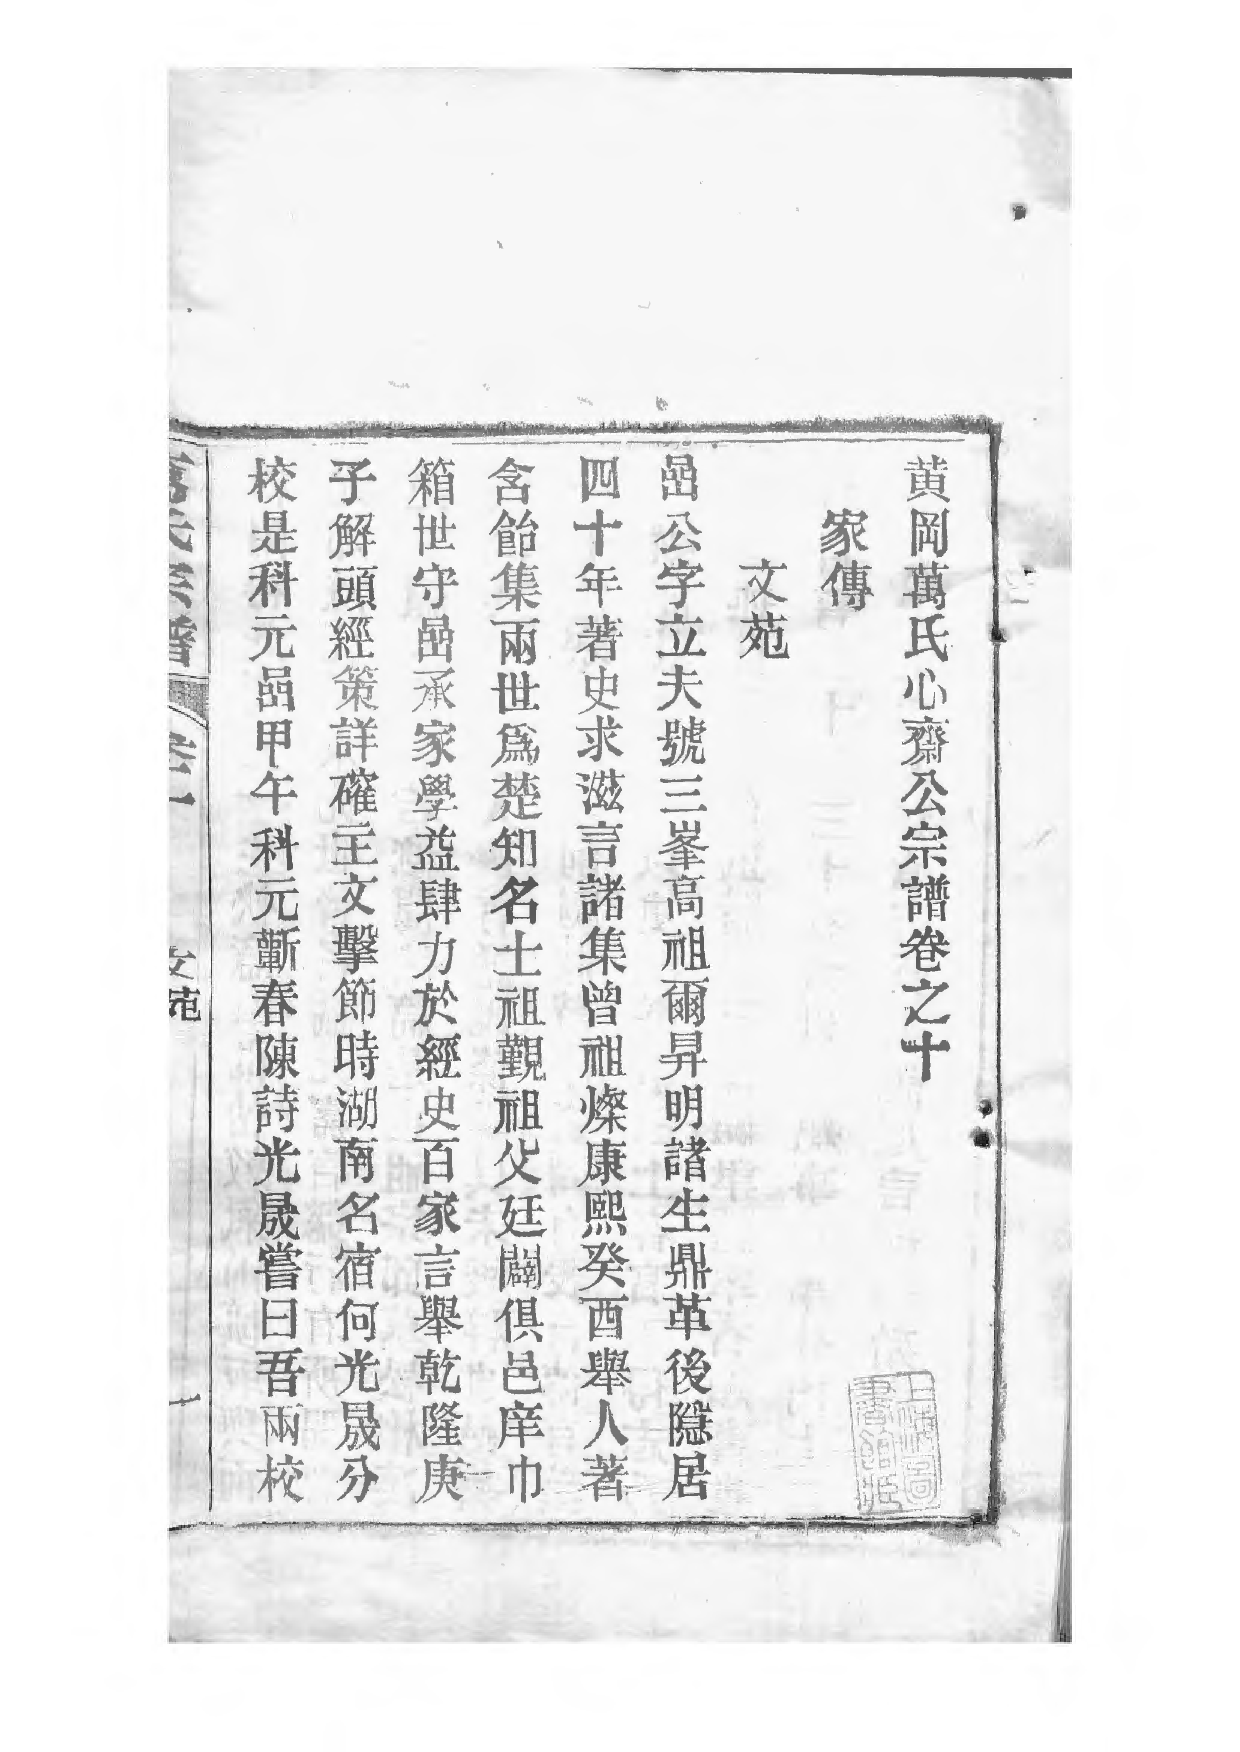 黃岡萬氏心齋公宗譜卷之十
家傳
文苑
嵒公字立夫號三峯高祖爾昇明諸生鼎革後隱居
四十年著史求滋言諸集曾祖燦康熙癸酉舉人著
含飴集兩世爲楚知名士祖觀祖父廷闢俱邑庠巾
箱世守嵒承家學益肆力於經史百家言舉乾隆庚
子解頭經策詳確主文擊節時湖南名宿何光晟分
校是科元嵒甲午科元蘄春陳詩光晟嘗曰吾兩校
萬氏宗譜
文苑
一
上海圖書館藏